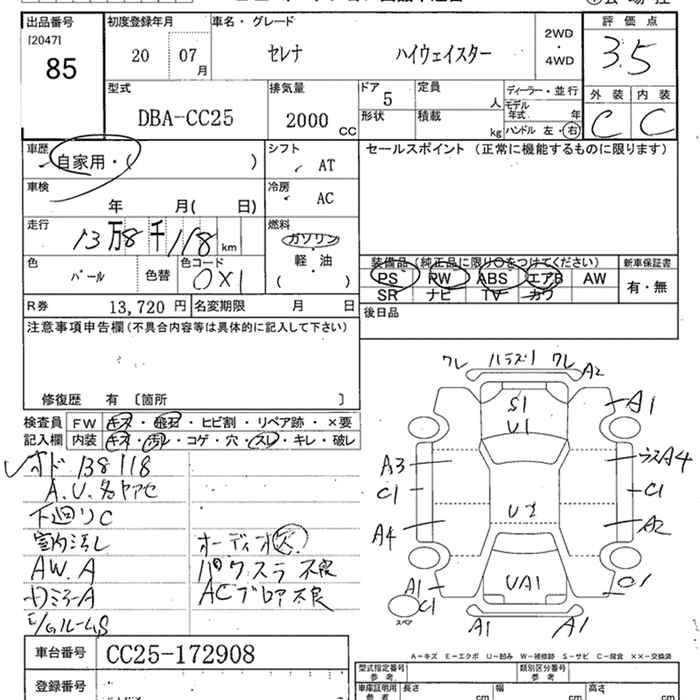 出品番号 初度登録年月 車名・グレード 2WD・4WD 評価点
[2047] 85 20 07月 セレナ ハイウェイスター 3.5
型式 排気量 ドア 定員 ディーラー・並行 外装 内装
DBA-CC25 2000CC 5 人 モデル年式 年 C C
形状 積載 kg ハンドル 左・右
車歴 シフト セールスポイント(正常に機能するものに限ります)
自家用・( ) AT
車検 冷房
年 月( 日) AC
走行 燃料
13万8千118km ガソリン
色 色コード 軽・油 装備品(純正品に限り○をつけてください) 新車保証書
パール 色替 0X1 ( ) PS PW ABS エアB AW 有・無
SR ナビ TV カワ
R券 13,720円 名変期限 月 日 後日品
注意事項申告欄(不具合内容等は具体的に記入して下さい)
修復歴 有 [箇所 ]
検査員 FW キズ・飛石・ヒビ割・リペア跡・×要
記入欄 内装 キズ・汚レ・コゲ・穴・スレ・キレ・破レ
138118
A.U.
下廻りC
オーディオ欠
AW.A パワスラ不良
ACブロア不良
ワレ ワレ A2
S1 A1
U1
A3 A4
C1 C1
A4 A2
A1 UA1
C1
スペア A1 A1
A-キズ E-エクボ U-凹み W-補修跡 S-サビ C-腐食 ××-交換済
車台番号 CC25-172908
型式指定番号 参考 類別区分番号 参考
登録番号 車庫証明用 参考 長さ cm 幅 cm 高さ cm